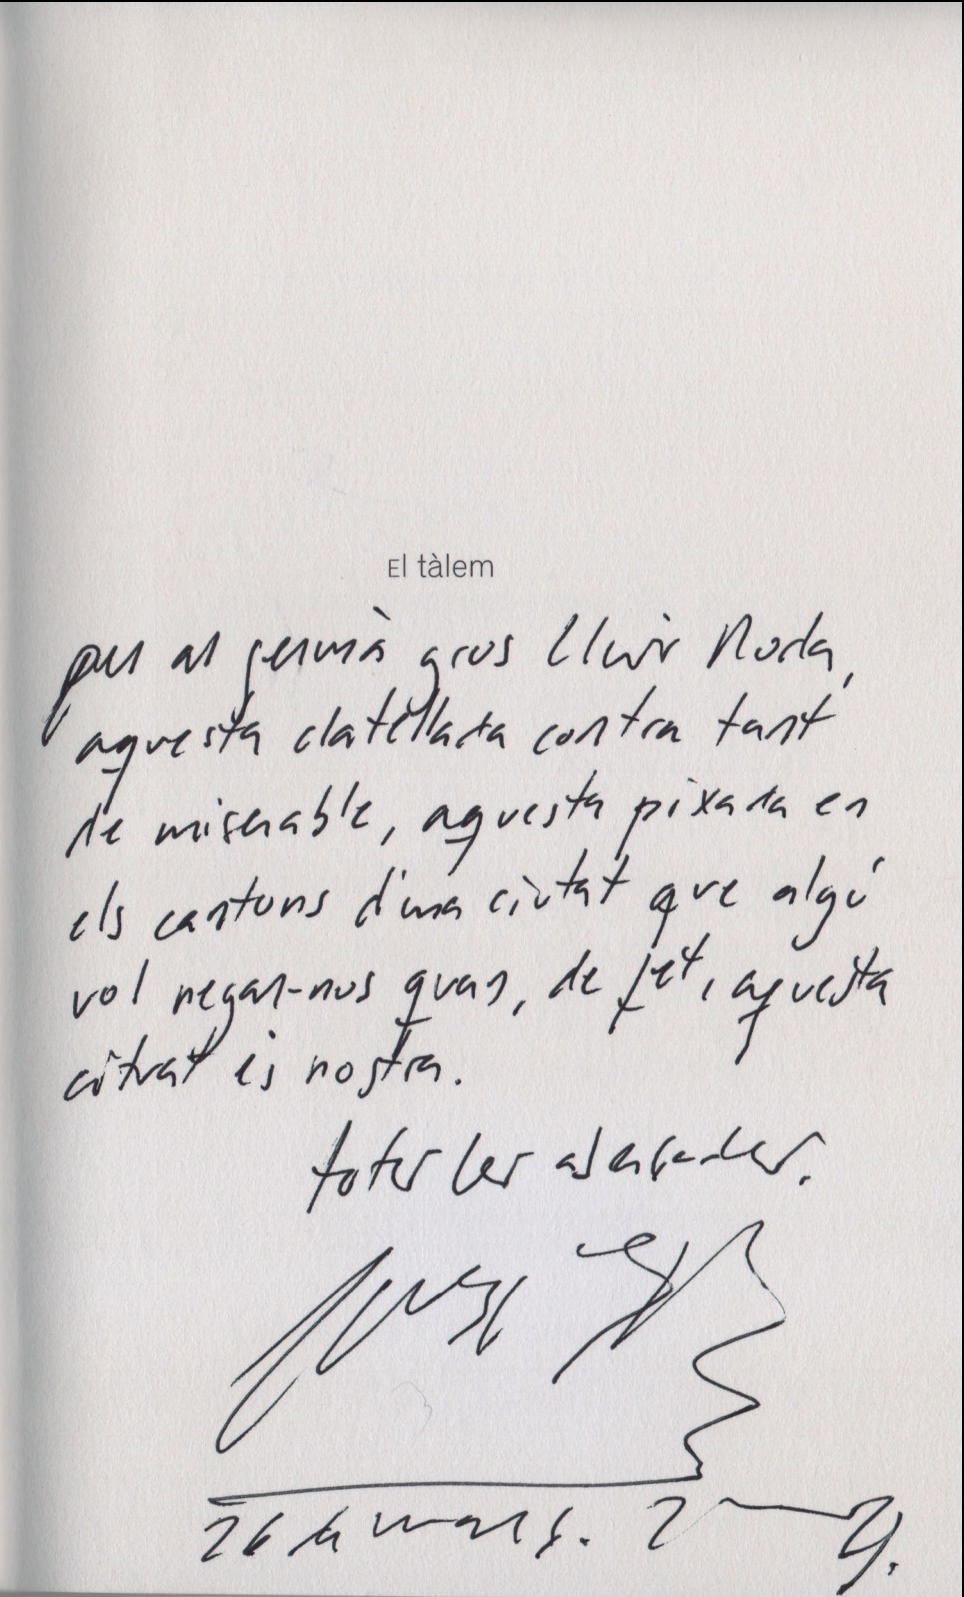 El tàlem
per al germà gros Lluís Roda,
aquesta clatellada contra tant
de miserable, aquesta pixada en
els cantons d'una ciutat que algú
vol negar-nos quan, de fet, aquesta
ciutat és nostra.
totes les abraçades.
26 de març. 2